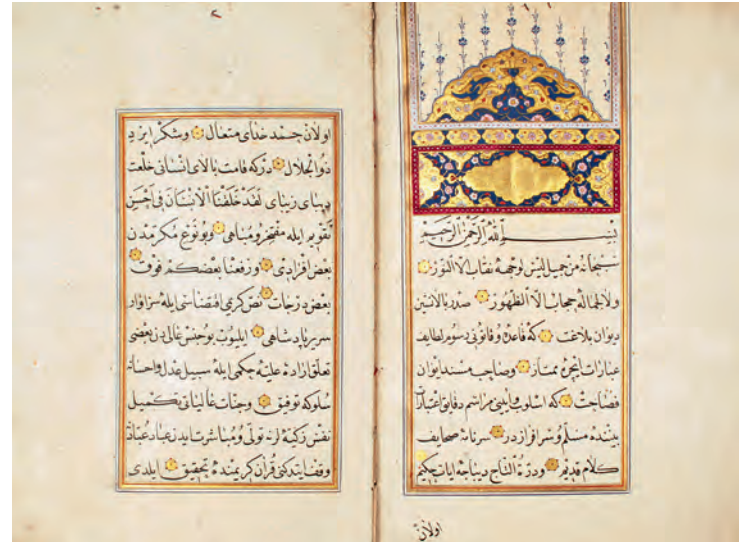 بسم الله الرحمن الرحيم
سبحانه من جميل ليس لوجهه نقاب الا النور
ولا لجماله حجاب الا الظهور صدر بالانشین
دیوان بلاغت که قاعده و قانونی رسوم لطایف
عباراتیچون ممتاز وصاحب مسند ایوان
فصاحت که اسلوب مراسم دقایق اعتبارا
بیننده مسلم و سرافرازدر سرنامهٔ صحایف
کلام قدیم ودرّة التاج دیباجهٔ ایات حکیم
اولان
اولان حمد خدای متعال وشکر ایزد
ذوالجلال درکه قامت بالای انسانی خلعت
دیبای زیبای لقد خلقنا الانسان فی احسن
تقویم ایله مفتخر ومباهی وبو نوع مکرمدن
بعض افرادی ورفعنا بعضکم فوق
بعض درجات نص کریمی اقتضاسی ایله سزاوار
سریر پادشاهی ایلیوب بو جنس عالیدن بعضی
تعلق اراده علیه حکمی ایله سبیل عدل واحسانه
سلوکه توفیق وجنات عالیاتی تکمیل
نفس زکیه لرنه تولی ومباشرت ایدن عباد
قرآن کریمنده تحقیق ایلدی